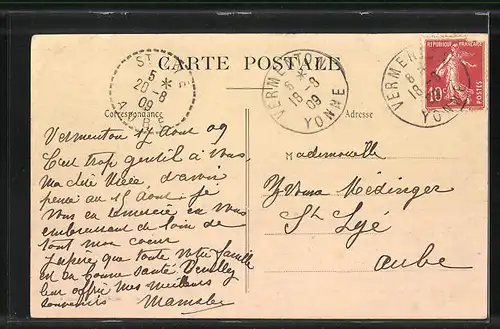 CARTE POSTALE
Correspondance
Adresse
ST LYÉ
5
20-8
09
AUBE
VERMENTON
6
18-8
09
YONNE
VERMENTON
6
18-8
YONNE
REPUBLIQUE FRANÇAISE
10c
Vermenton 17 Aout 09
C'est trop gentil à vous,
Ma chère d'avoir
pensé au 15 Août. Je
vous en remercie en vous
embrassant de loin de
tout mon coeur
J'espère que toute votre famille
est en bonne santé Veuillez
leur offrir mes meilleurs
souvenirs
Mademoiselle
Medinger
St Lyé
Aube